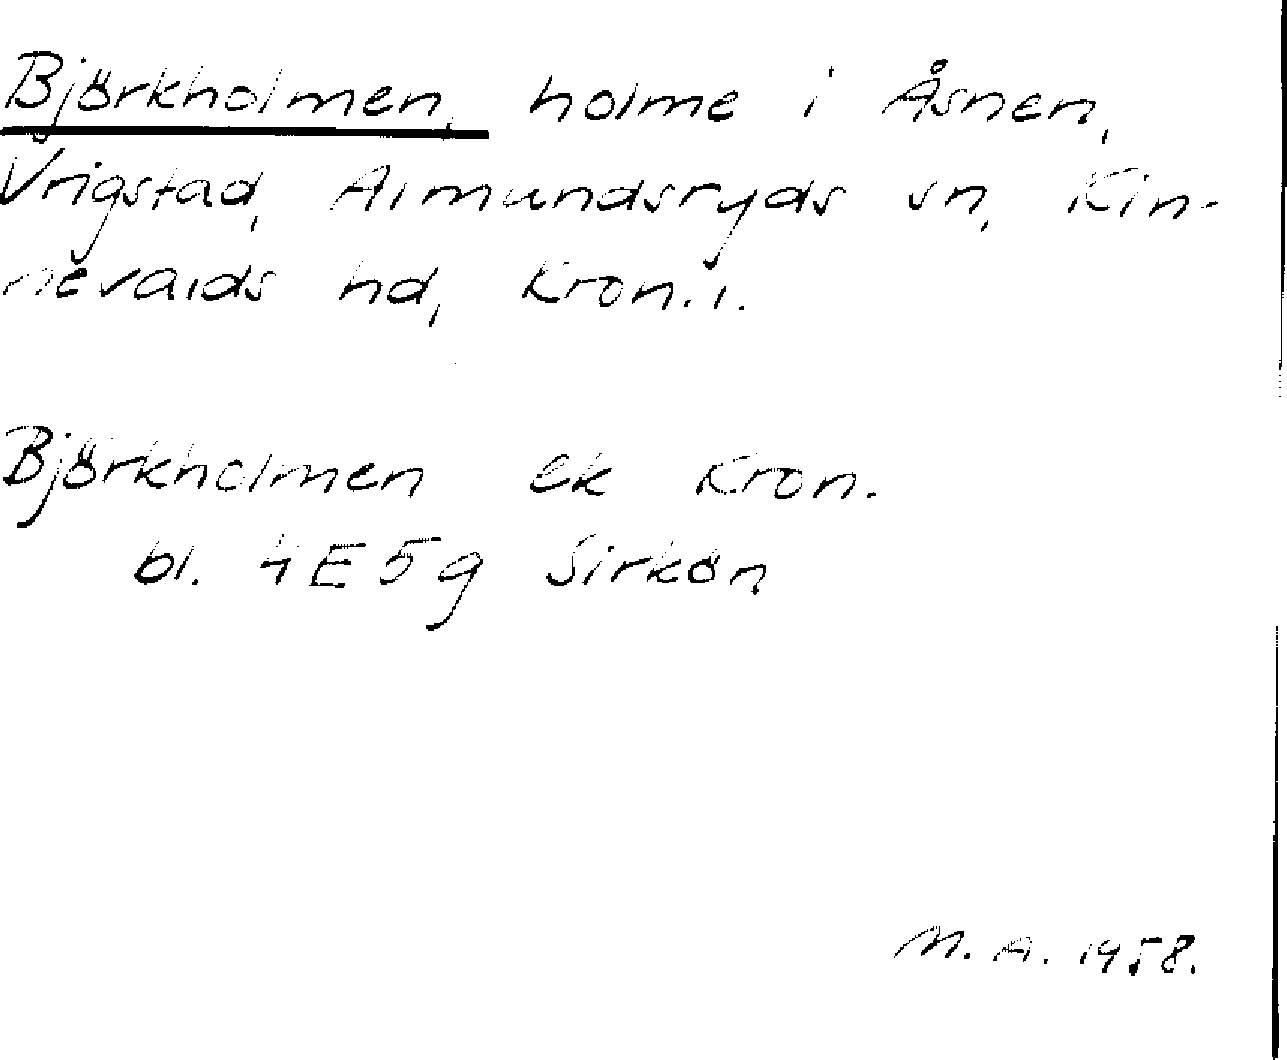 Björkholmen, holme i Åsnen,
Vrigstad, Almundsryds sn, Kin-
nevalds hd, Kron.l.
Björkholmen ek Kron.
bl. 4E5g Sirkön
M.A. 1958.